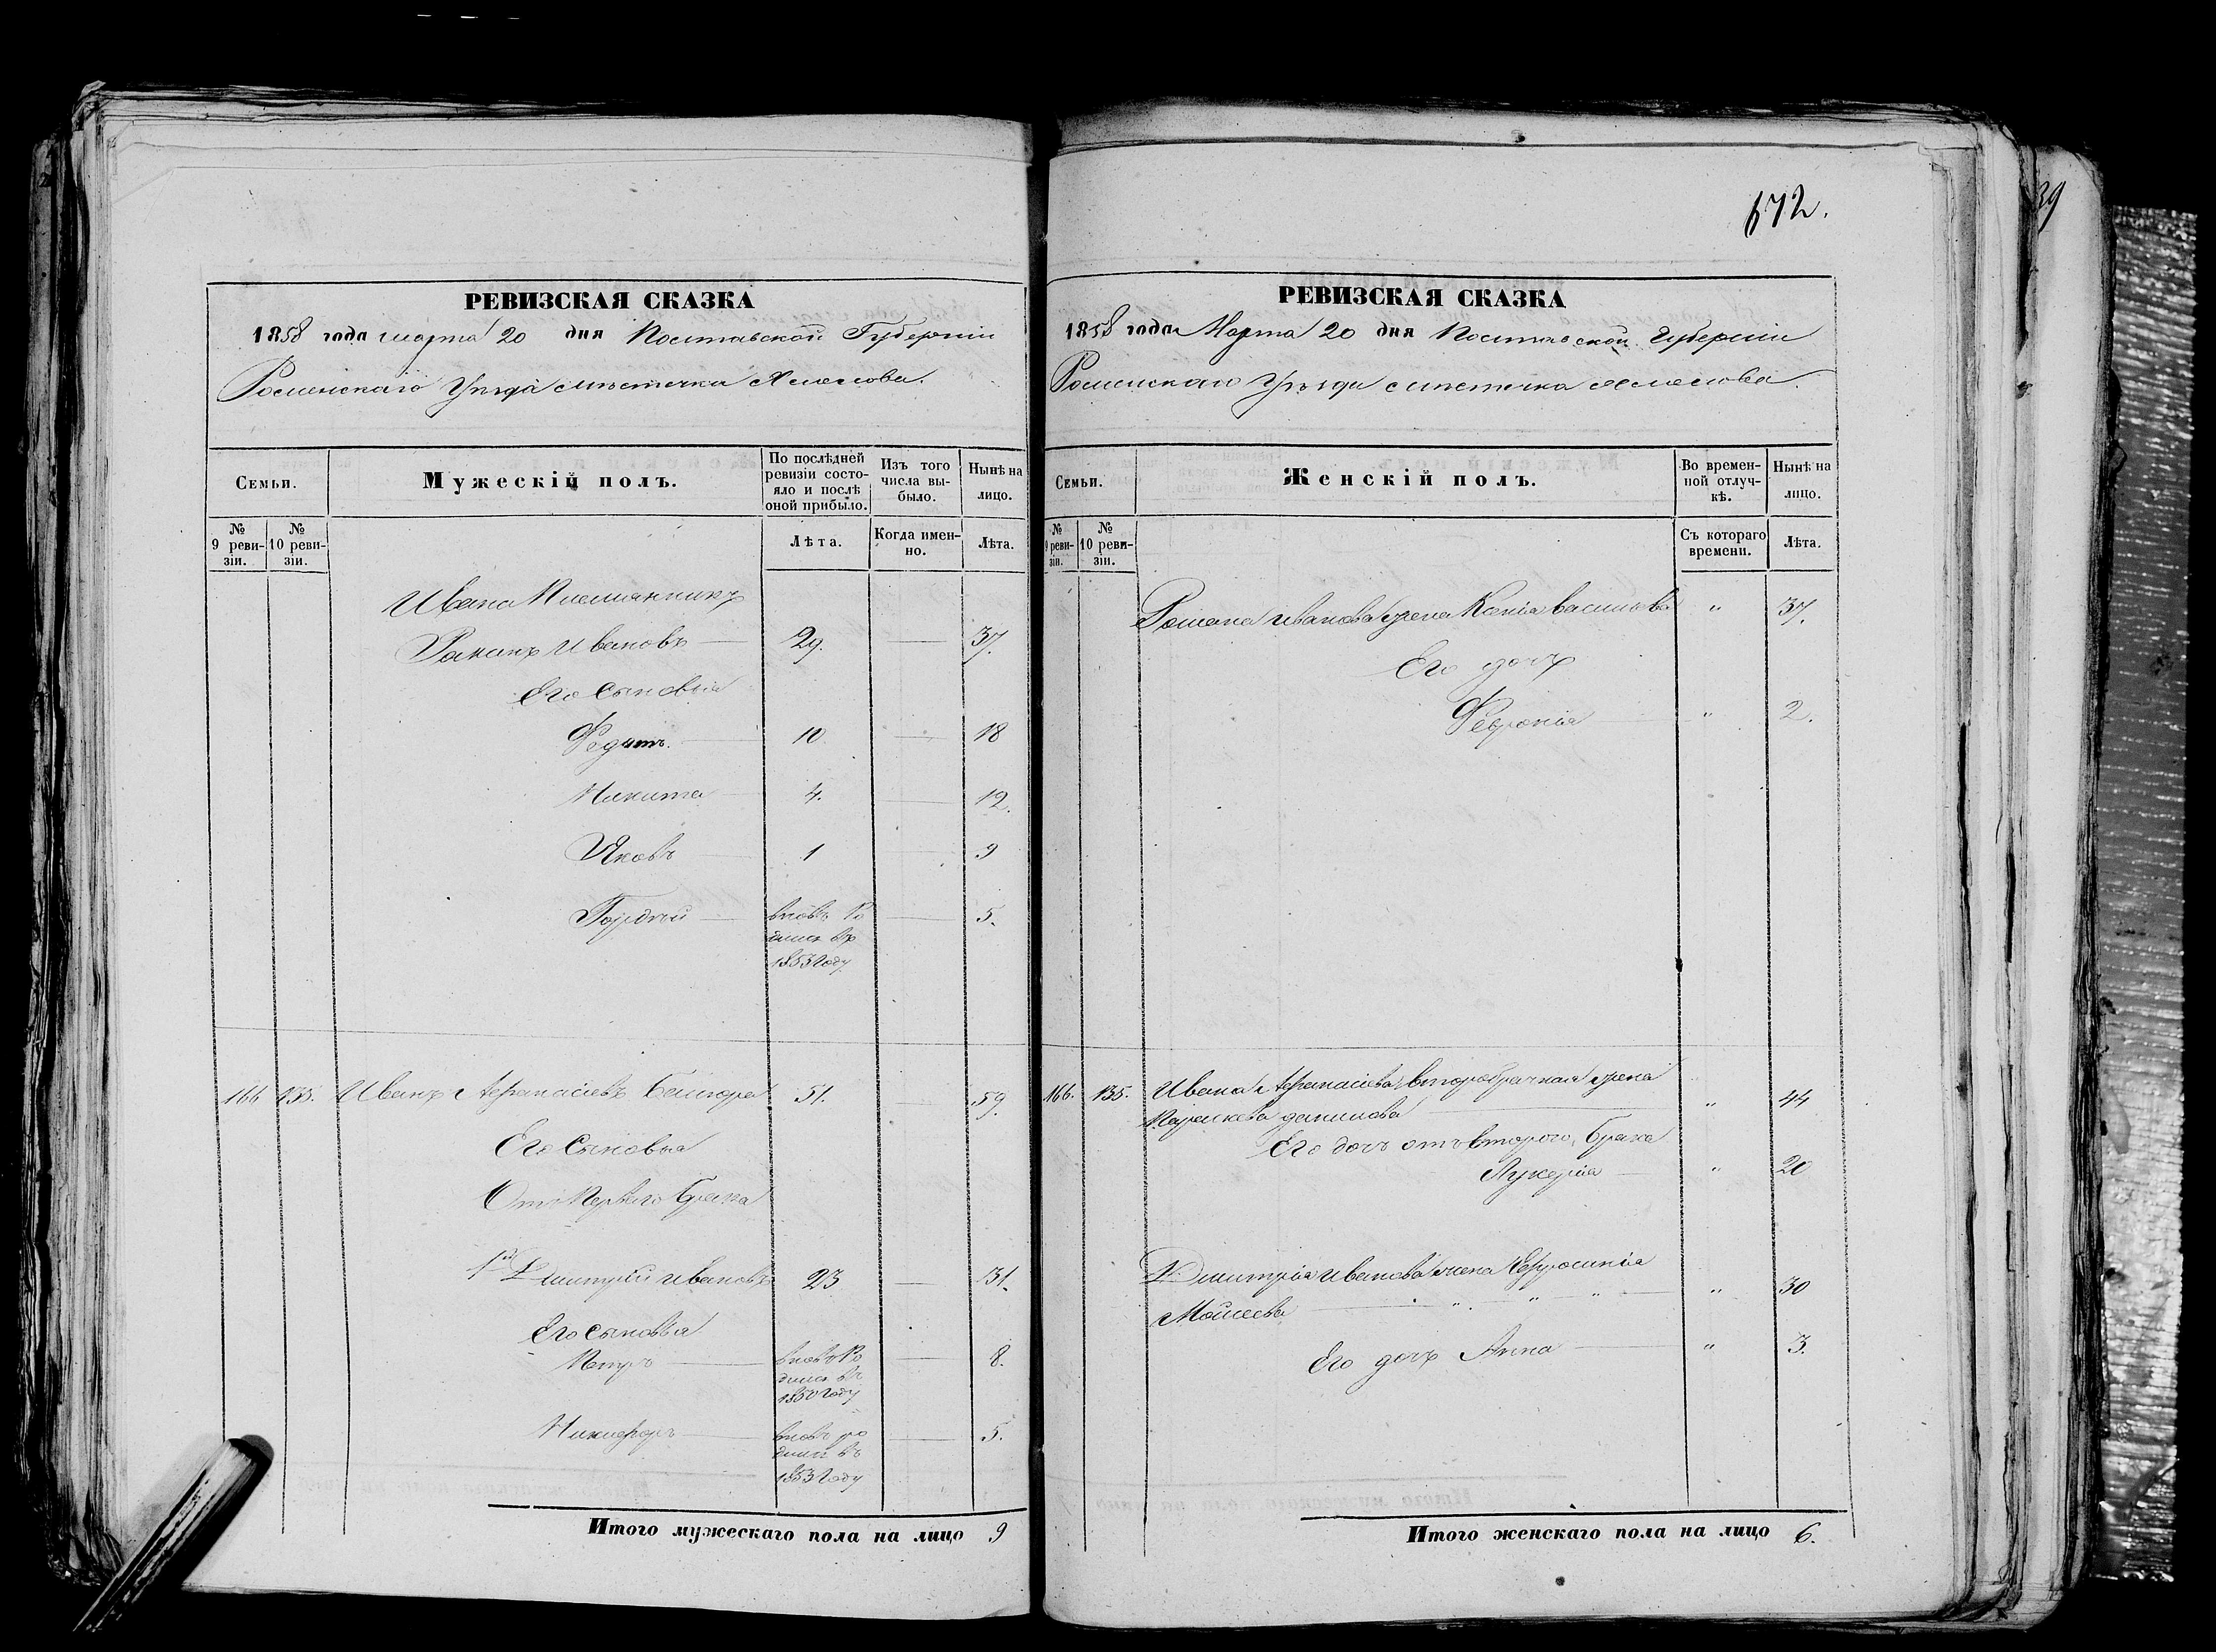 РЕВИЗСКАЯ СКАЗКА
1858 года марта 20 дня Полтавской Губернии
Роменскаго Уезда местечка
Семьи.
Мужескій полъ.
По послѣдней ревизіи состо-
яло и послѣ
оной прибыло.
Изъ того
числа вы-
было.
Нынѣ на
лицо.
№
9 реви-
зіи.
№
10 реви-
зіи.
Лѣта.
Когда имен-
но.
Лѣта.
Ивана Племянникъ
Романъ Ивановъ 29. 37.
Его Сыновья
Федотъ. 10 18
Никита 4. 12.
Яковъ 1 9
Гордей вновь ро 5.
дился въ
1853 Году
166 135. Иванъ Афанасіевъ 51. 59.
Его Сыновья
Отъ Перваго Брака
1й Дмитрій Ивановъ 23 31.
Его Сыновья
Петръ вновь Ро 8.
дился въ
1850 Году
Никифоръ вновь ро 5.
дился въ
1853 Году
Итого мужескаго пола на лицо 9
172.
39
РЕВИЗСКАЯ СКАЗКА
1858 года Марта 20 дня Полтавской Губерніи
Роменскаго Уезда местечка
Семьи.
Женскій полъ.
Во времен-
ной отлуч-
кѣ.
Нынѣ на
лицо.
№
9 реви-
зіи.
№
10 реви-
зіи.
Съ котораго
времени.
Лѣта.
Романа Иванова жена Ксенія василіова " 37.
Его дочь
Февронія " 2.
166. 135. Ивана Афанасіева второбрачная жена
Параскева данилова " 44
Его дочь отъ второго Брака
Лукерія " 20
Дмитрія Иванова жена Ефросинія
Моисеева " 30
Его дочь Анна " 3.
Итого женскаго пола на лицо 6.